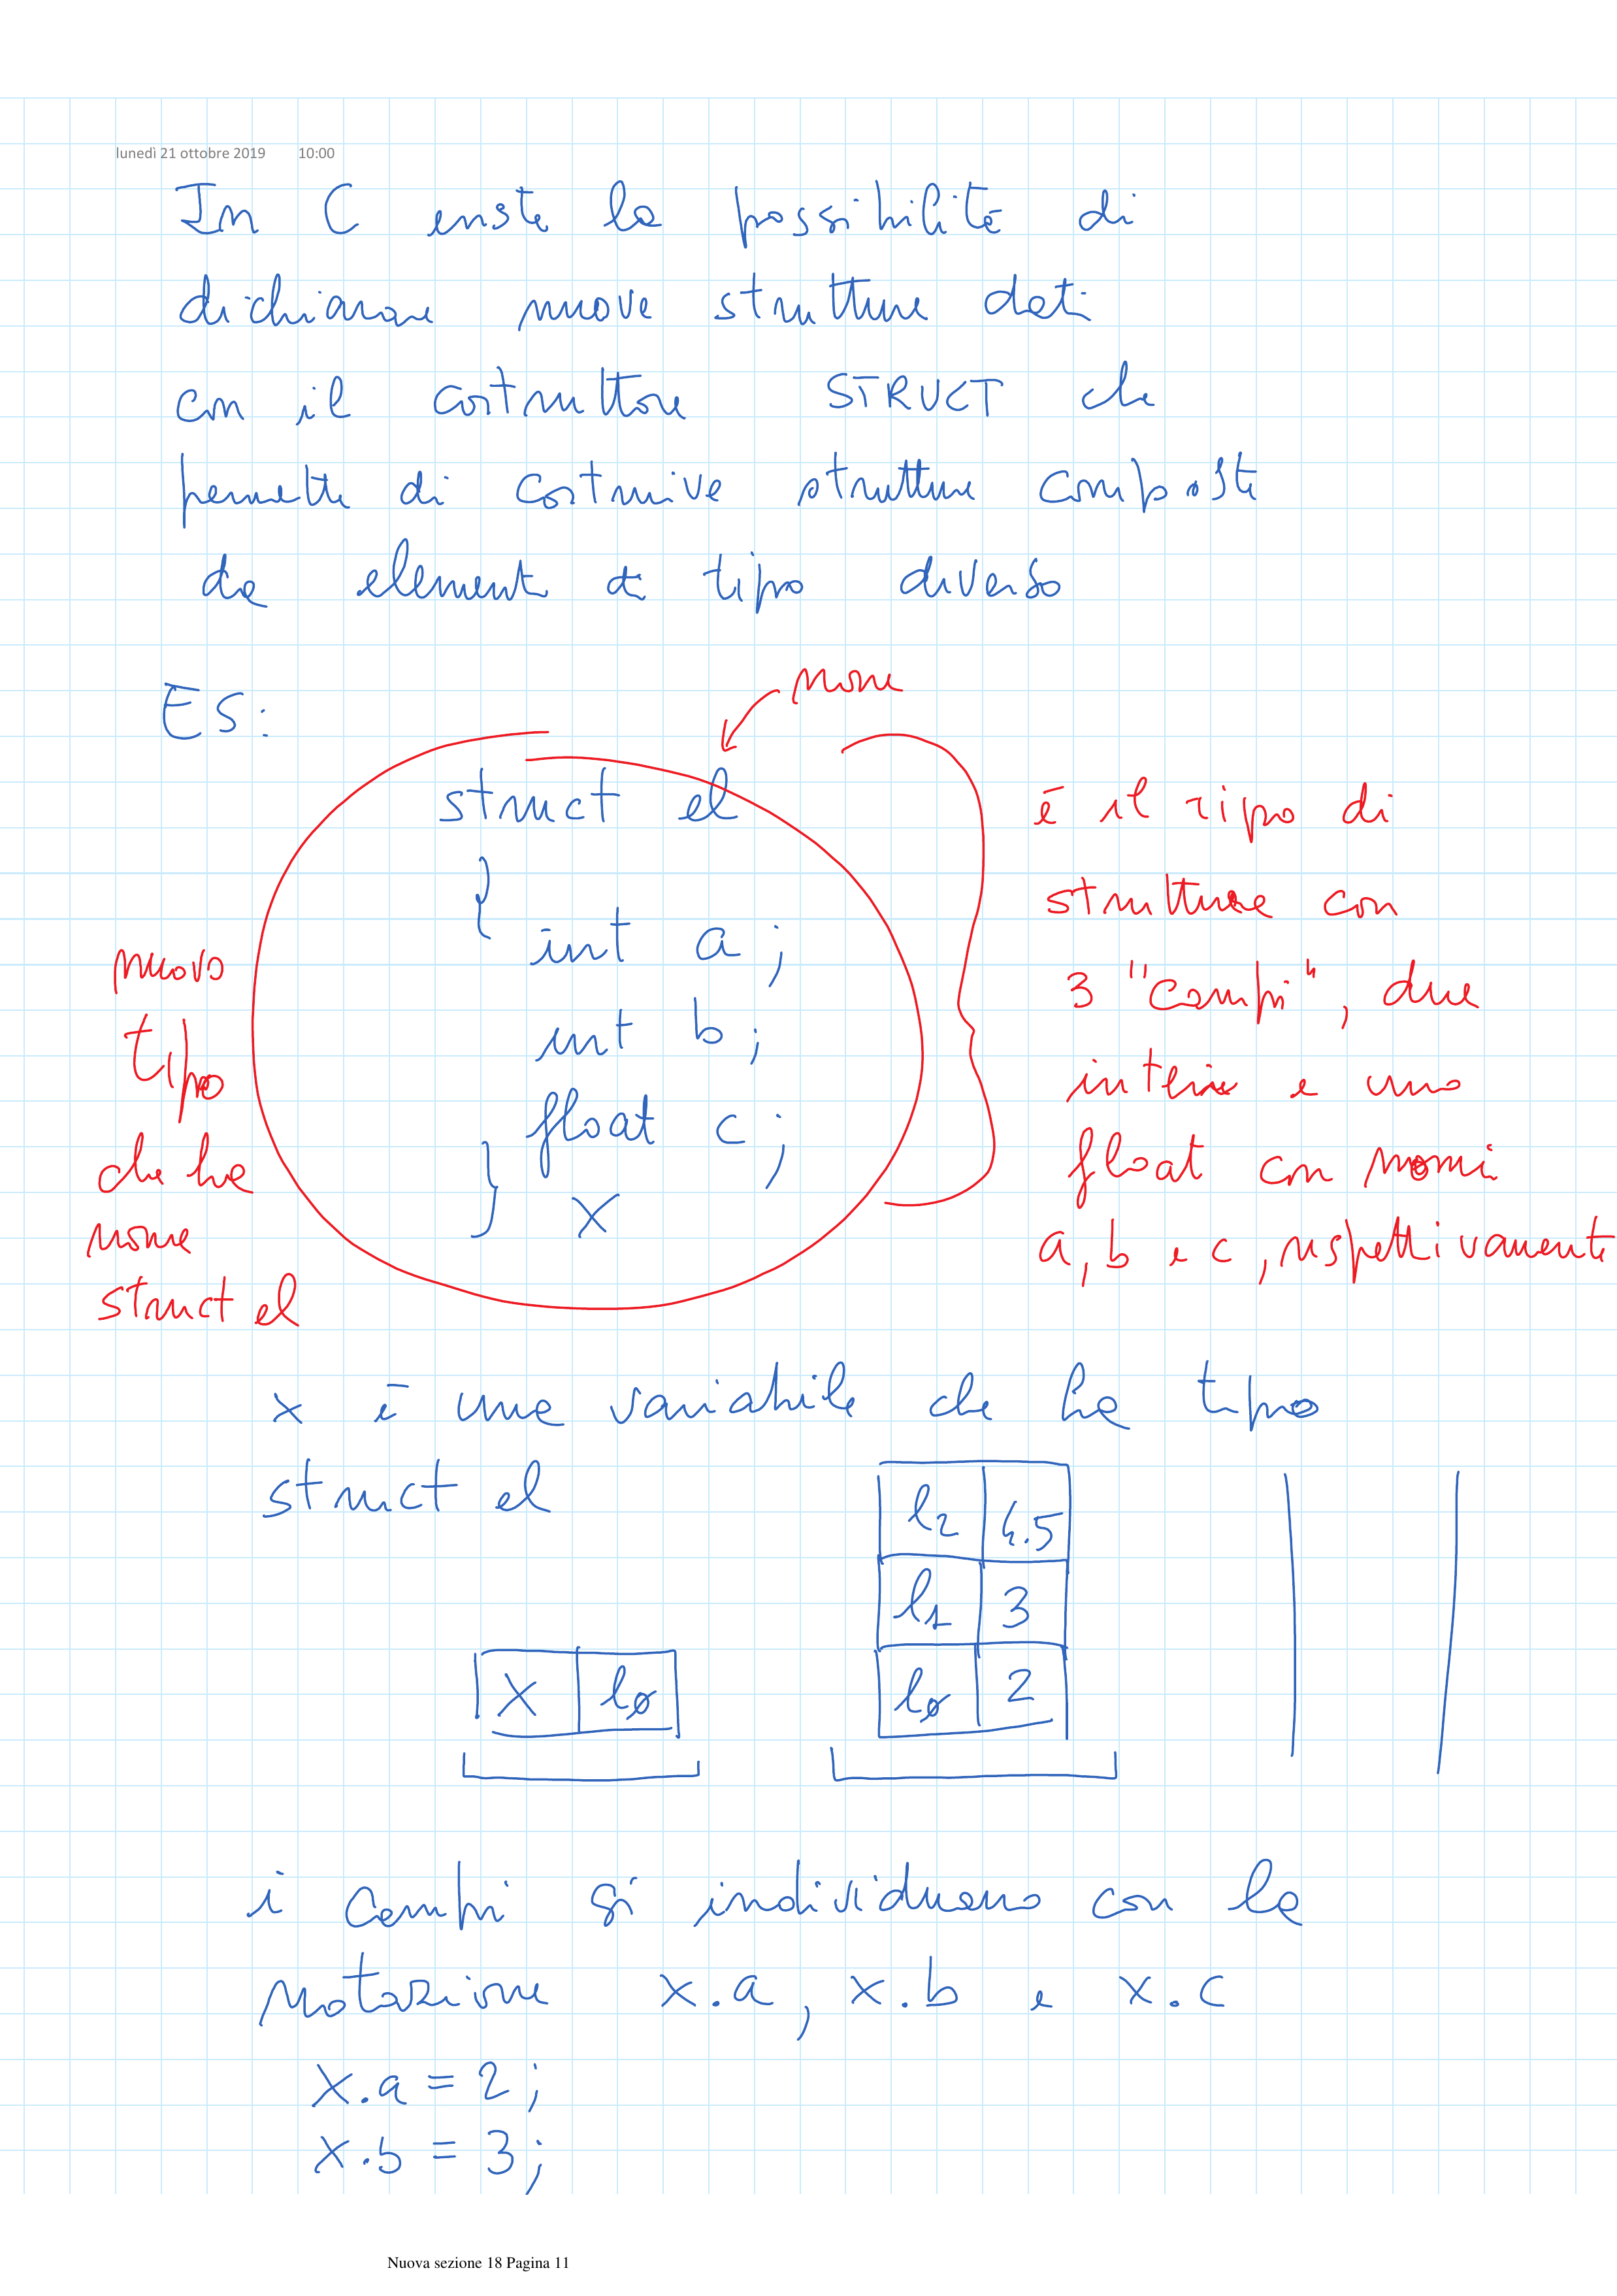 lunedì 21 ottobre 2019 10:00
In C esiste la possibilità di
dichiarare nuove strutture dati
con il costruttore STRUCT che
permette di costruire strutture composte
da elementi di tipo diverso
ES:
nome
struct el
{
int a ;
int b ;
float c ;
} x
nuovo
tipo
che ha
nome
struct el
è il tipo di
strutture con
3 "campi", due
interi e uno
float con nomi
a, b e c, rispettivamente
x è una variabile che ha tipo
struct el
l2 4.5
l1 3
x l0
l0 2
i campi si individuano con la
notazione x.a, x.b e x.c
x.a = 2;
x.b = 3;
Nuova sezione 18 Pagina 11